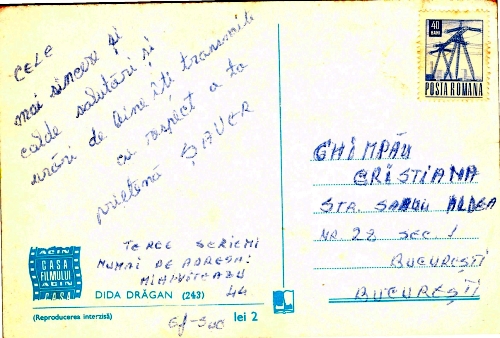 CELE
mai sincere și
calde salutări și
urări de bine îți transmite
cu respect a ta
prietenă
TE ROG SCRIEMI
NUMAI PE ADRESA:
44
ACIN
CASA
FILMULUI
ACIN
CASA
DIDA DRĂGAN (243)
(Reproducerea interzisă)
lei 2
40
BANI
POSTA ROMANA
GHIMPĂU
CRISTIANA
STR. SANDU ALDEA
NR 28 SEC. 1
BUCUREȘTI
BUCUREȘTI